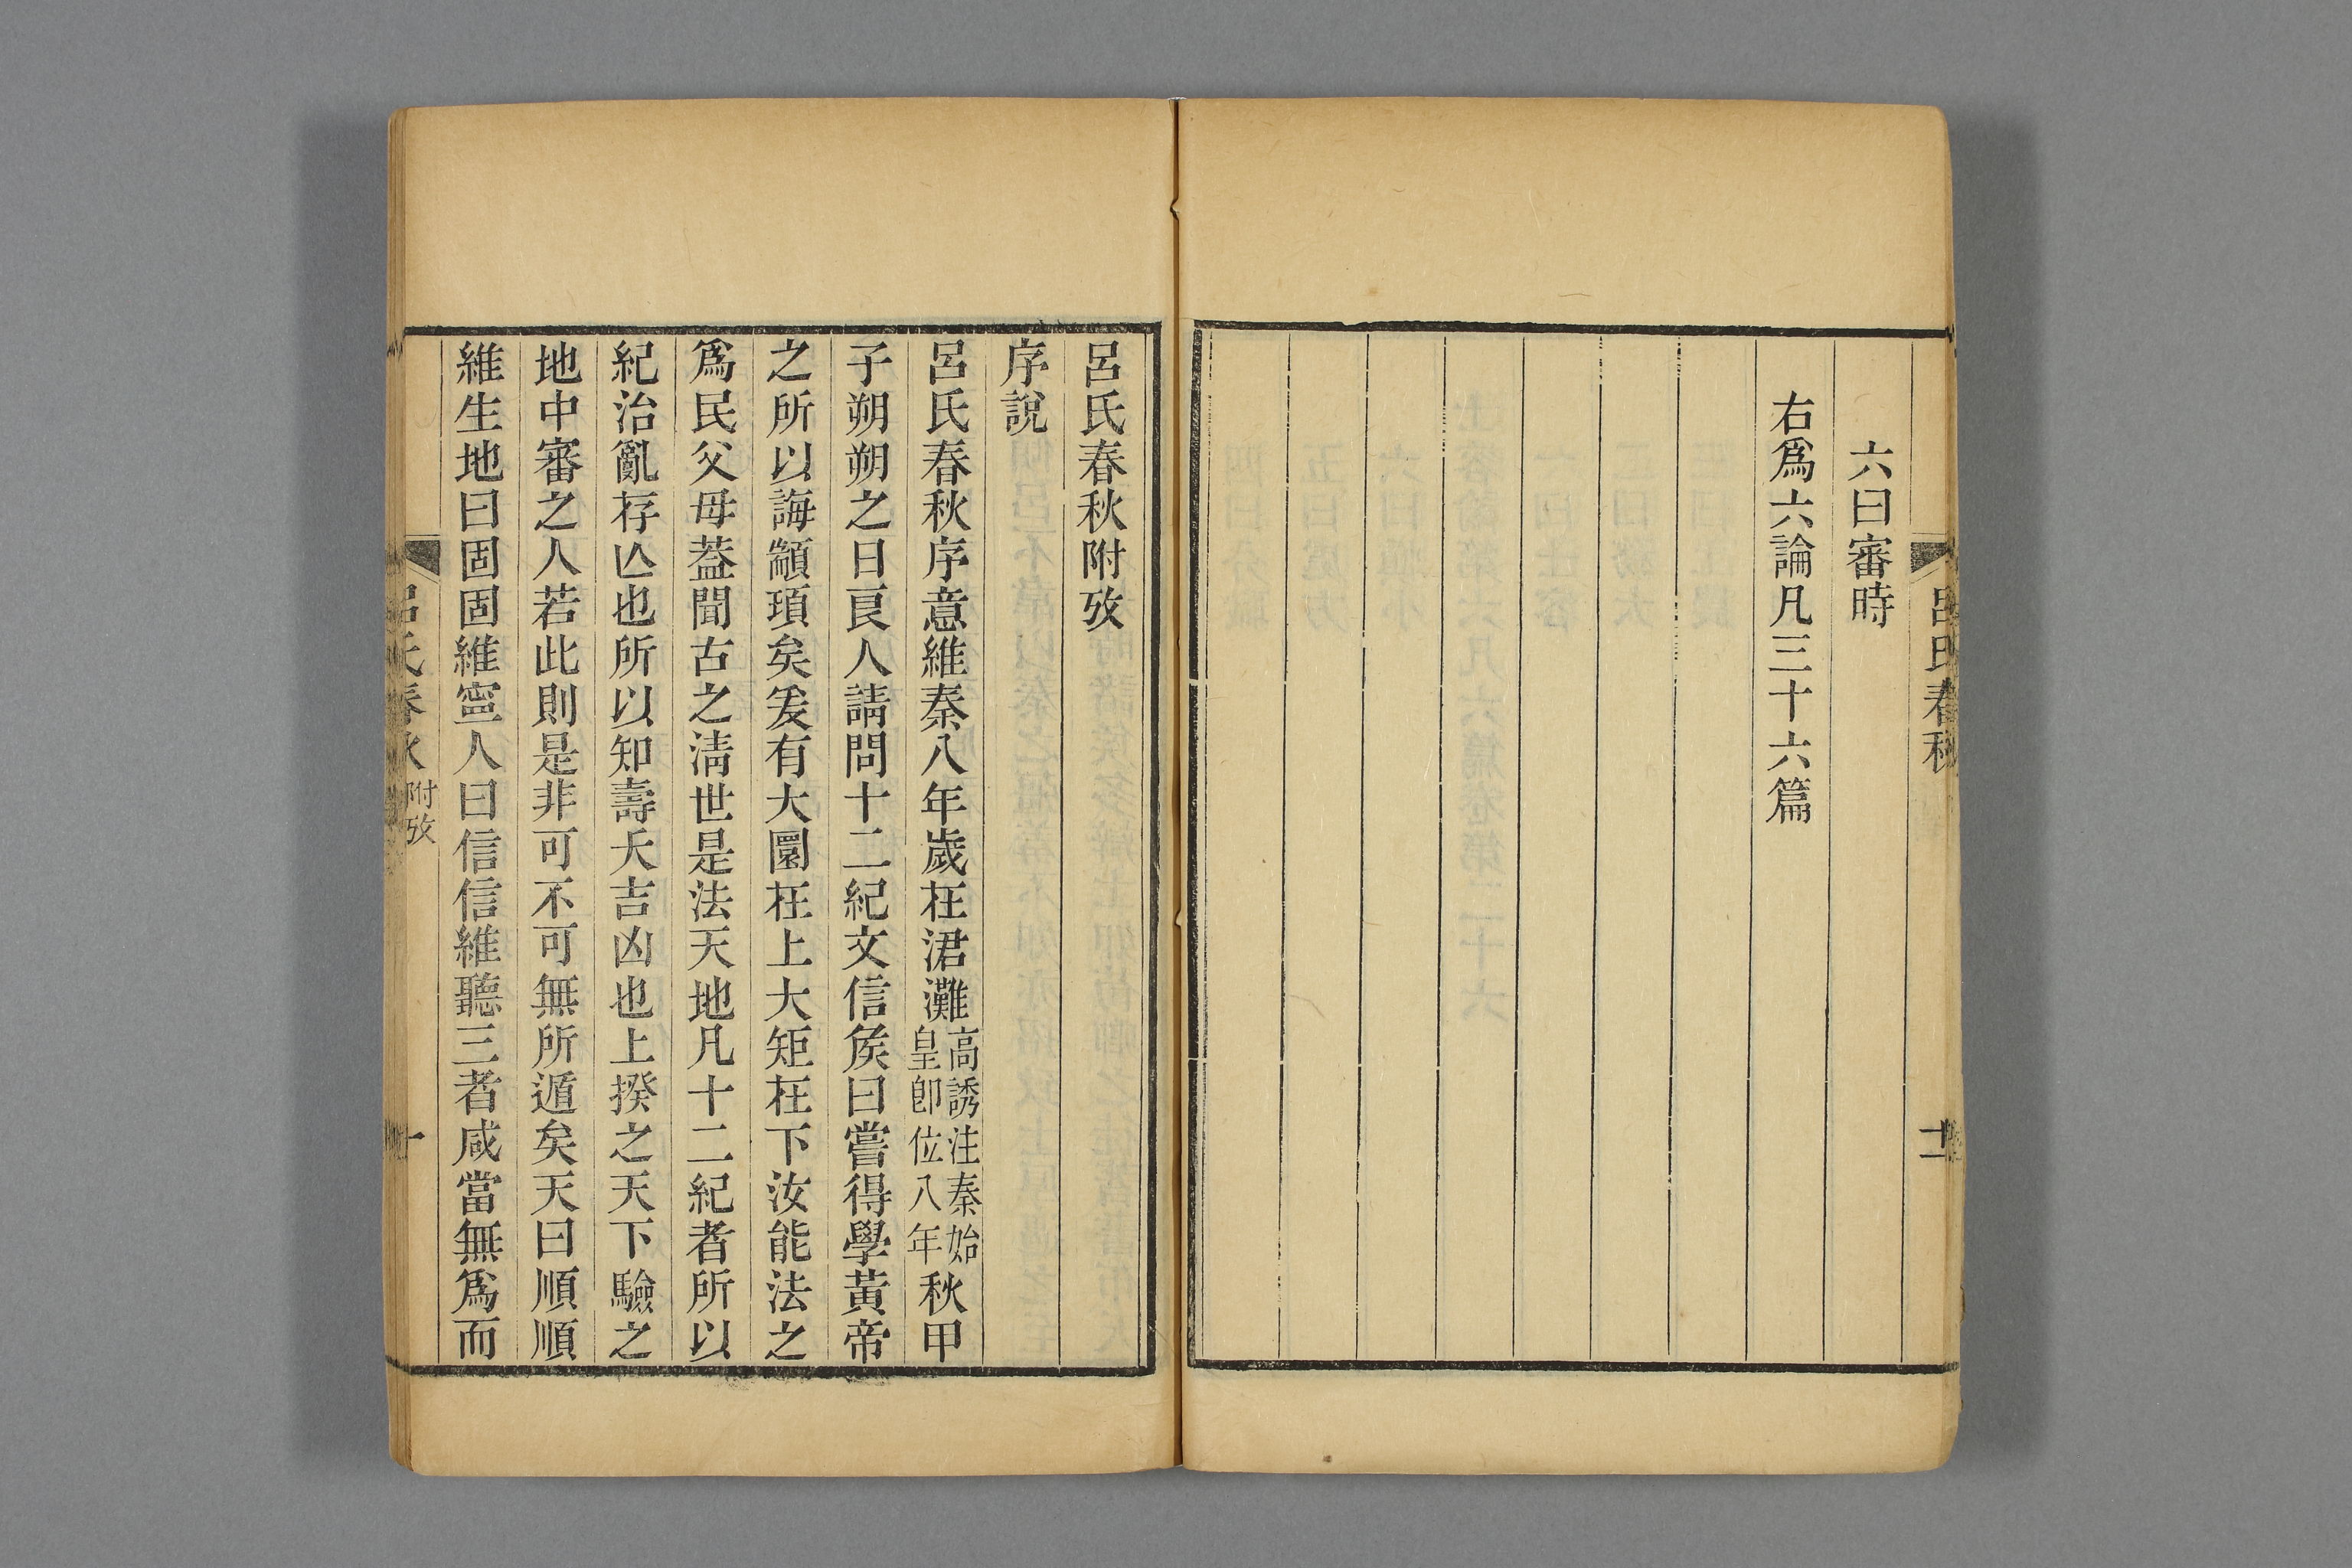 呂氏春秋
十二
六曰審時
右爲六論凡三十六篇
呂氏春秋附攷
序說
呂氏春秋序意維秦八年歲在涒灘高誘注秦始皇卽位八年秋甲
子朔朔之日良人請問十二紀文信矦曰嘗得學黃帝
之所以誨顓頊矣爰有大圜在上大矩在下汝能法之
爲民父母葢聞古之淸世是法天地凡十二紀者所以
紀治亂存亾也所以知壽夭吉凶也上揆之天下驗之
地中審之人若此則是非可不可無所遁矣天曰順順
維生地曰固固維寍人曰信信維聽三者咸當無爲而
呂氏春秋 附攷 一